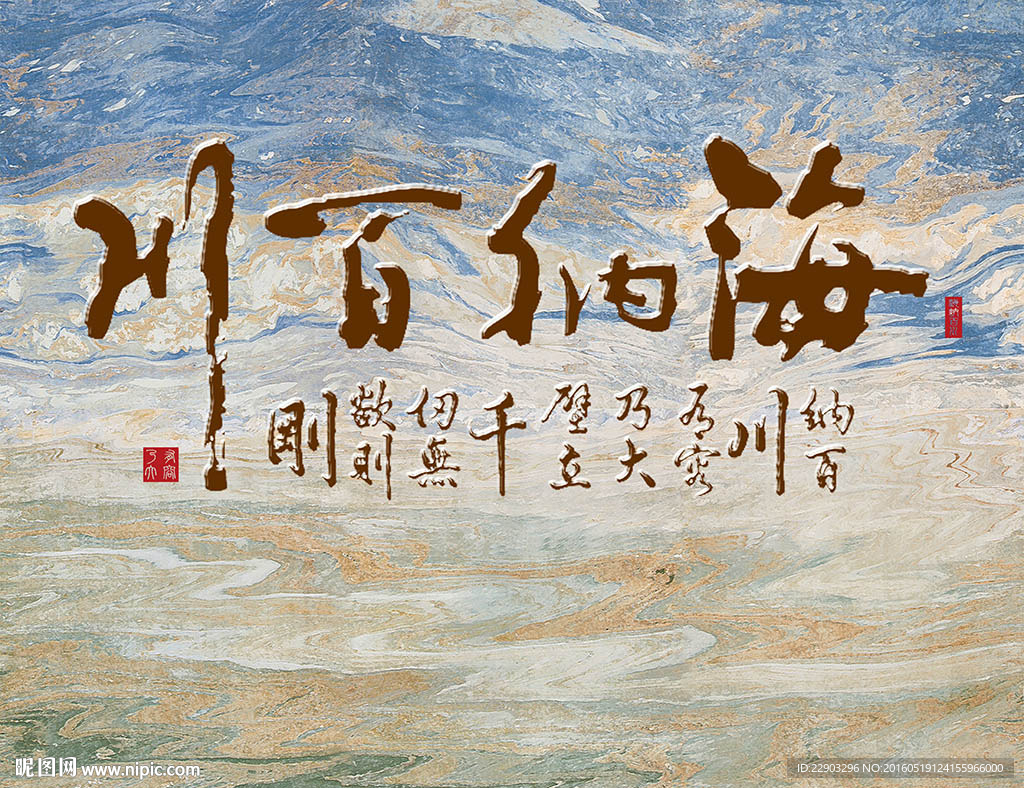 海納百川
海納百川
納百
川
有容
乃大
壁立
千
仞無
欲則
剛
有容乃大
昵图网 www.nipic.com
ID:22903296 NO:20160519124155966000